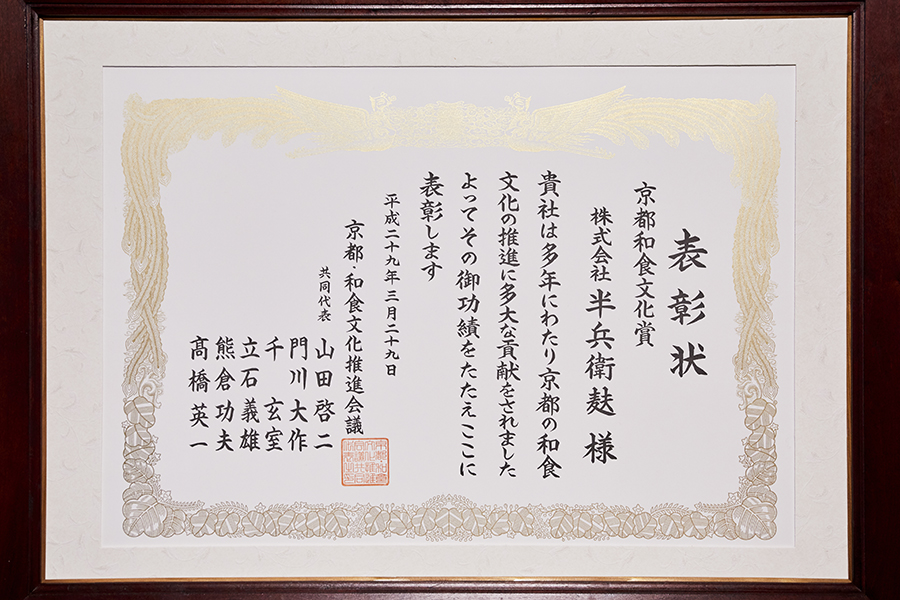 表彰状
京都和食文化賞
株式会社 半兵衛麸 様
貴社は多年にわたり京都の和食
文化の推進に多大な貢献をされました
よってその御功績をたたえここに
表彰します
平成二十九年三月二十九日
京都・和食文化推進会議
共同代表
山田啓二
門川大作
千 玄室
立石義雄
熊倉功夫
髙橋英一